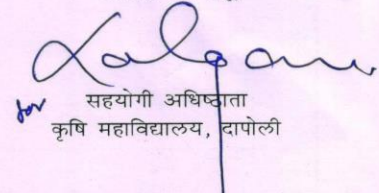 for
सहयोगी अधिष्ठाता
कृषि महाविद्यालय, दापोली